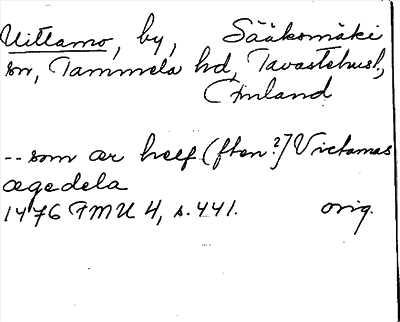 Uittamo, by, Sääksmäki
sn, Tammela hd, Tavastehusl,
Finland
-- som ær heef (ften?] Victamas
ægedela
1476 FMU 4, s. 441. orig.